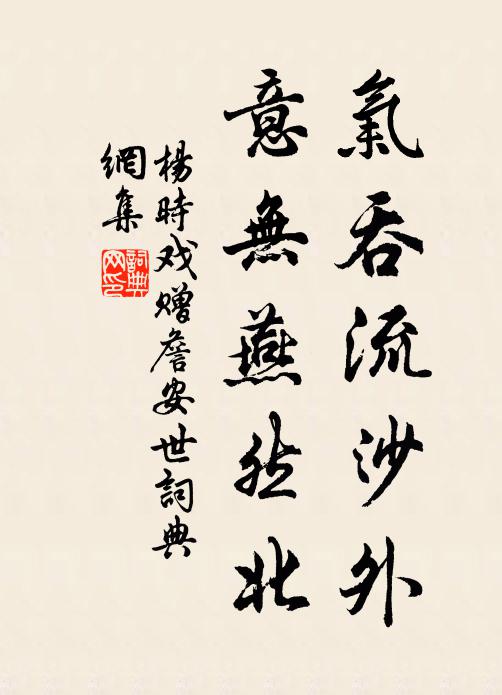 氣吞流沙外
意無燕然北
楊時戏贈詹安世詞典
網集
詞典
网印